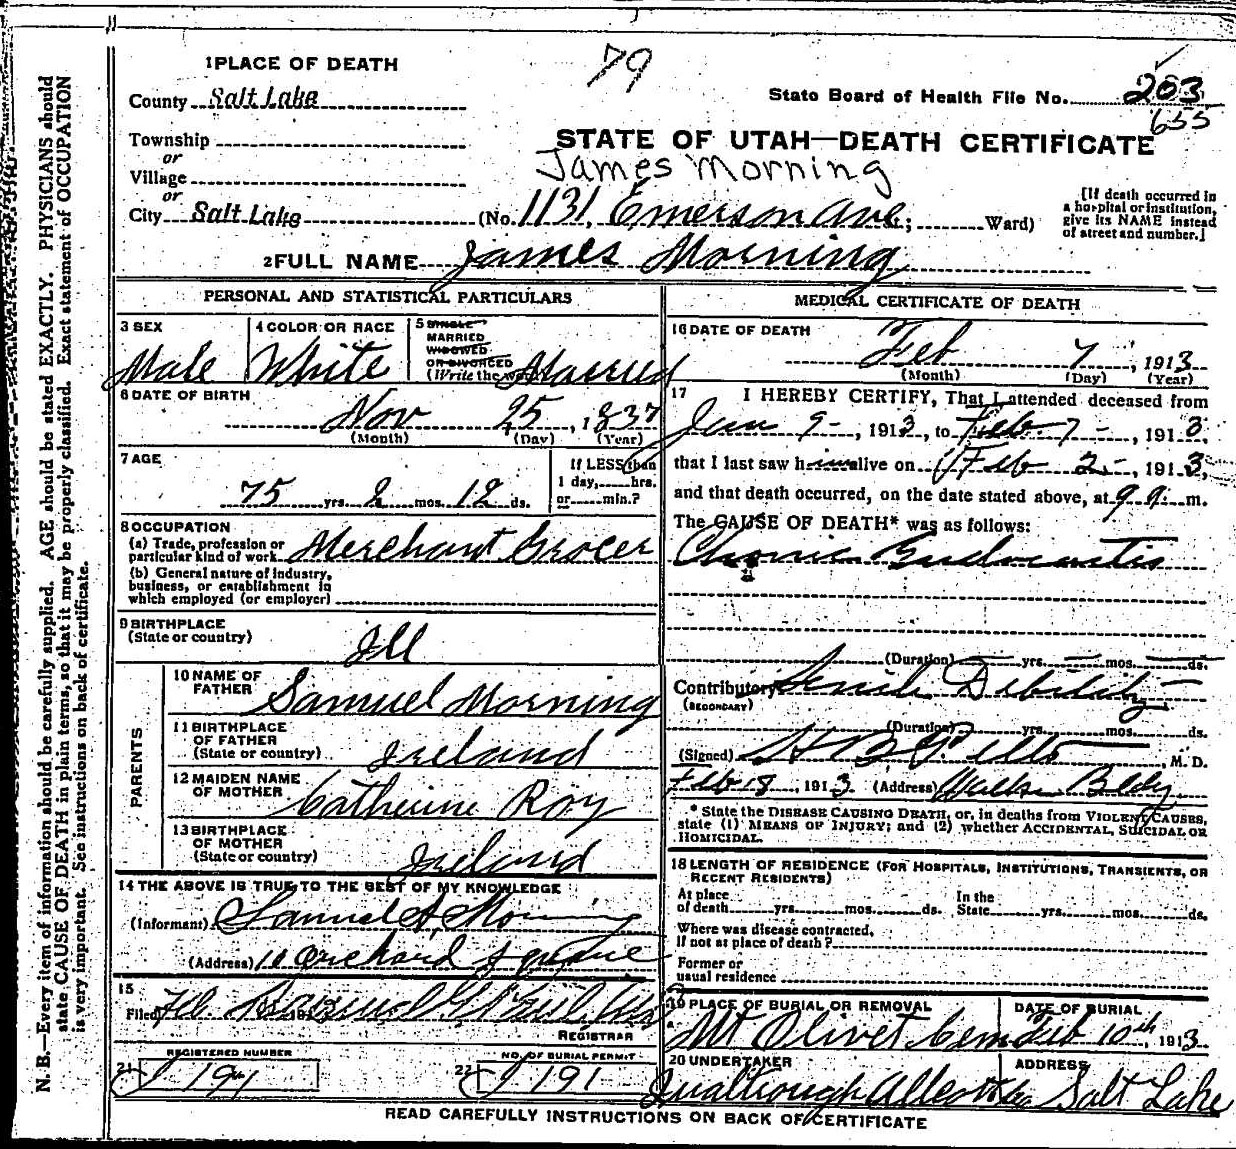 79
1 PLACE OF DEATH
County Salt Lake
State Board of Health File No. 203
655
Township
or
Village
or
STATE OF UTAH—DEATH CERTIFICATE
James Morning
City Salt Lake (No. 1131, Emerson Ave.; Ward)
[If death occurred in
a hospital or institution,
give its NAME instead
of street and number.]
2 FULL NAME James Morning
PERSONAL AND STATISTICAL PARTICULARS
3 SEX
Male
4 COLOR OR RACE
White
5 SINGLE
MARRIED
WIDOWED
OR DIVORCED
(Write the word) Married
6 DATE OF BIRTH
Nov 25, 1837
(Month) (Day) (Year)
7 AGE
75 yrs. 2 mos. 12 ds.
If LESS than
1 day, hrs.
or min.?
8 OCCUPATION
(a) Trade, profession or
particular kind of work Merchant Grocer
(b) General nature of industry,
business, or establishment in
which employed (or employer)
9 BIRTHPLACE
(State or country)
Ill
PARENTS
10 NAME OF
FATHER Samuel Morning
11 BIRTHPLACE
OF FATHER
(State or country) Ireland
12 MAIDEN NAME
OF MOTHER Catherine Roy
13 BIRTHPLACE
OF MOTHER
(State or country) Ireland
14 THE ABOVE IS TRUE TO THE BEST OF MY KNOWLEDGE
(Informant) Samuel A. Morning
(Address) 10 Orchard Square
15
Filed Feb Samuel G. Paul
REGISTRAR
REGISTERED NUMBER
21 191
NO. OF BURIAL PERMIT
22 191
MEDICAL CERTIFICATE OF DEATH
16 DATE OF DEATH
Feb 7, 1913
(Month) (Day) (Year)
17 I HEREBY CERTIFY, That I attended deceased from
Jan 9-, 1913, to Feb 7-, 1913,
that I last saw him alive on Feb 2-, 1913,
and that death occurred, on the date stated above, at 9 a. m.
The CAUSE OF DEATH* was as follows:
Chronic Endocarditis
(Duration) yrs. mos. ds.
Contributory Senile Debility
(SECONDARY)
(Duration) yrs. mos. ds.
(Signed) H B, M. D.
Feb 18, 1913 (Address) Walker Bldg
* State the DISEASE CAUSING DEATH, or, in deaths from VIOLENT CAUSES,
state (1) MEANS OF INJURY; and (2) whether ACCIDENTAL, SUICIDAL OR
HOMICIDAL.
18 LENGTH OF RESIDENCE (FOR HOSPITALS, INSTITUTIONS, TRANSIENTS, OR
RECENT RESIDENTS)
At place
of death yrs. mos. ds.
In the
State yrs. mos. ds.
Where was disease contracted,
if not at place of death?
Former or
usual residence
19 PLACE OF BURIAL OR REMOVAL
Mt Olivet Cem
DATE OF BURIAL
Feb 10th, 1913
20 UNDERTAKER
Qualtrough Allcott Co
ADDRESS
Salt Lake
READ CAREFULLY INSTRUCTIONS ON BACK OF CERTIFICATE
N. B.—Every item of information should be carefully supplied. AGE should be stated EXACTLY. PHYSICIANS should
state CAUSE OF DEATH in plain terms, so that it may be properly classified. Exact statement of OCCUPATION
is very important. See instructions on back of certificate.